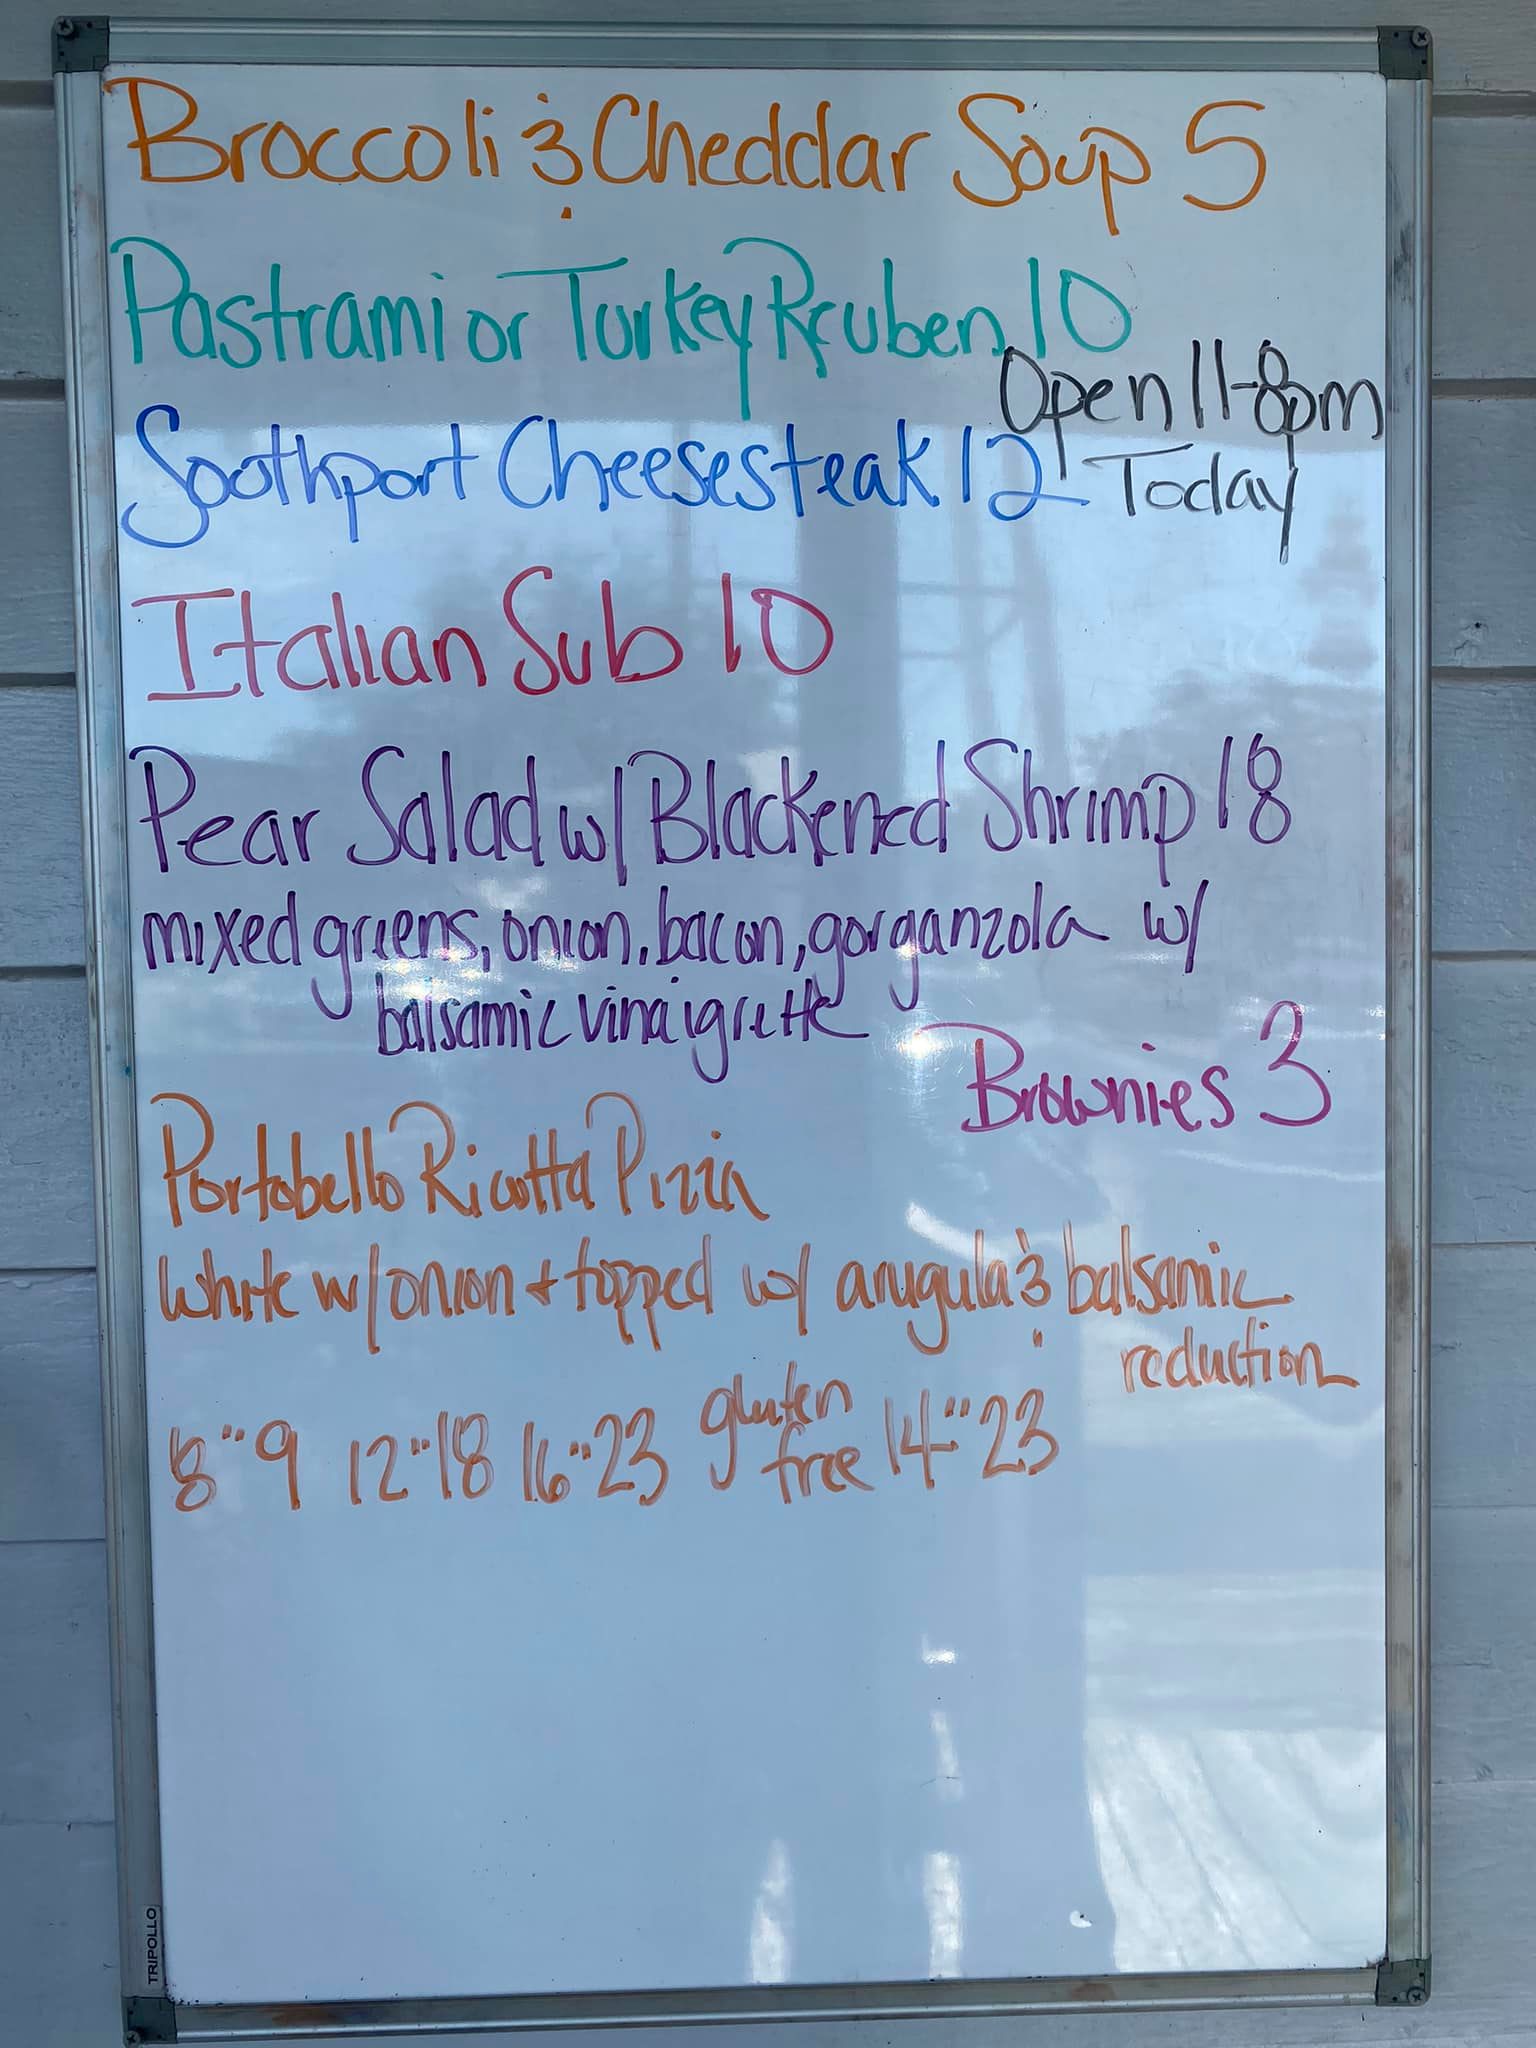 Broccoli & Cheddar Soup 5
Pastrami or Turkey Reuben 10
Open 11-8pm
Today
Southport Cheesesteak 12
Italian Sub 10
Pear Salad w/ Blackened Shrimp 18
mixed greens, onion, bacon, gorganzola w/
balsamic vinaigrette
Brownies 3
Portobello Ricotta Pizza
White w/ onion + topped w/ arugula & balsamic
reduction
8" 9 12" 18 16" 23 gluten free 14" 23
TRIPOLLO